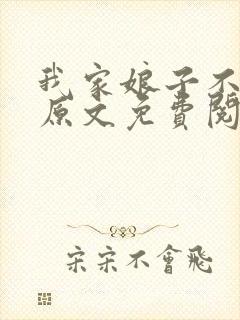 我家娘子不
原文免費閱
宋宋不會飛